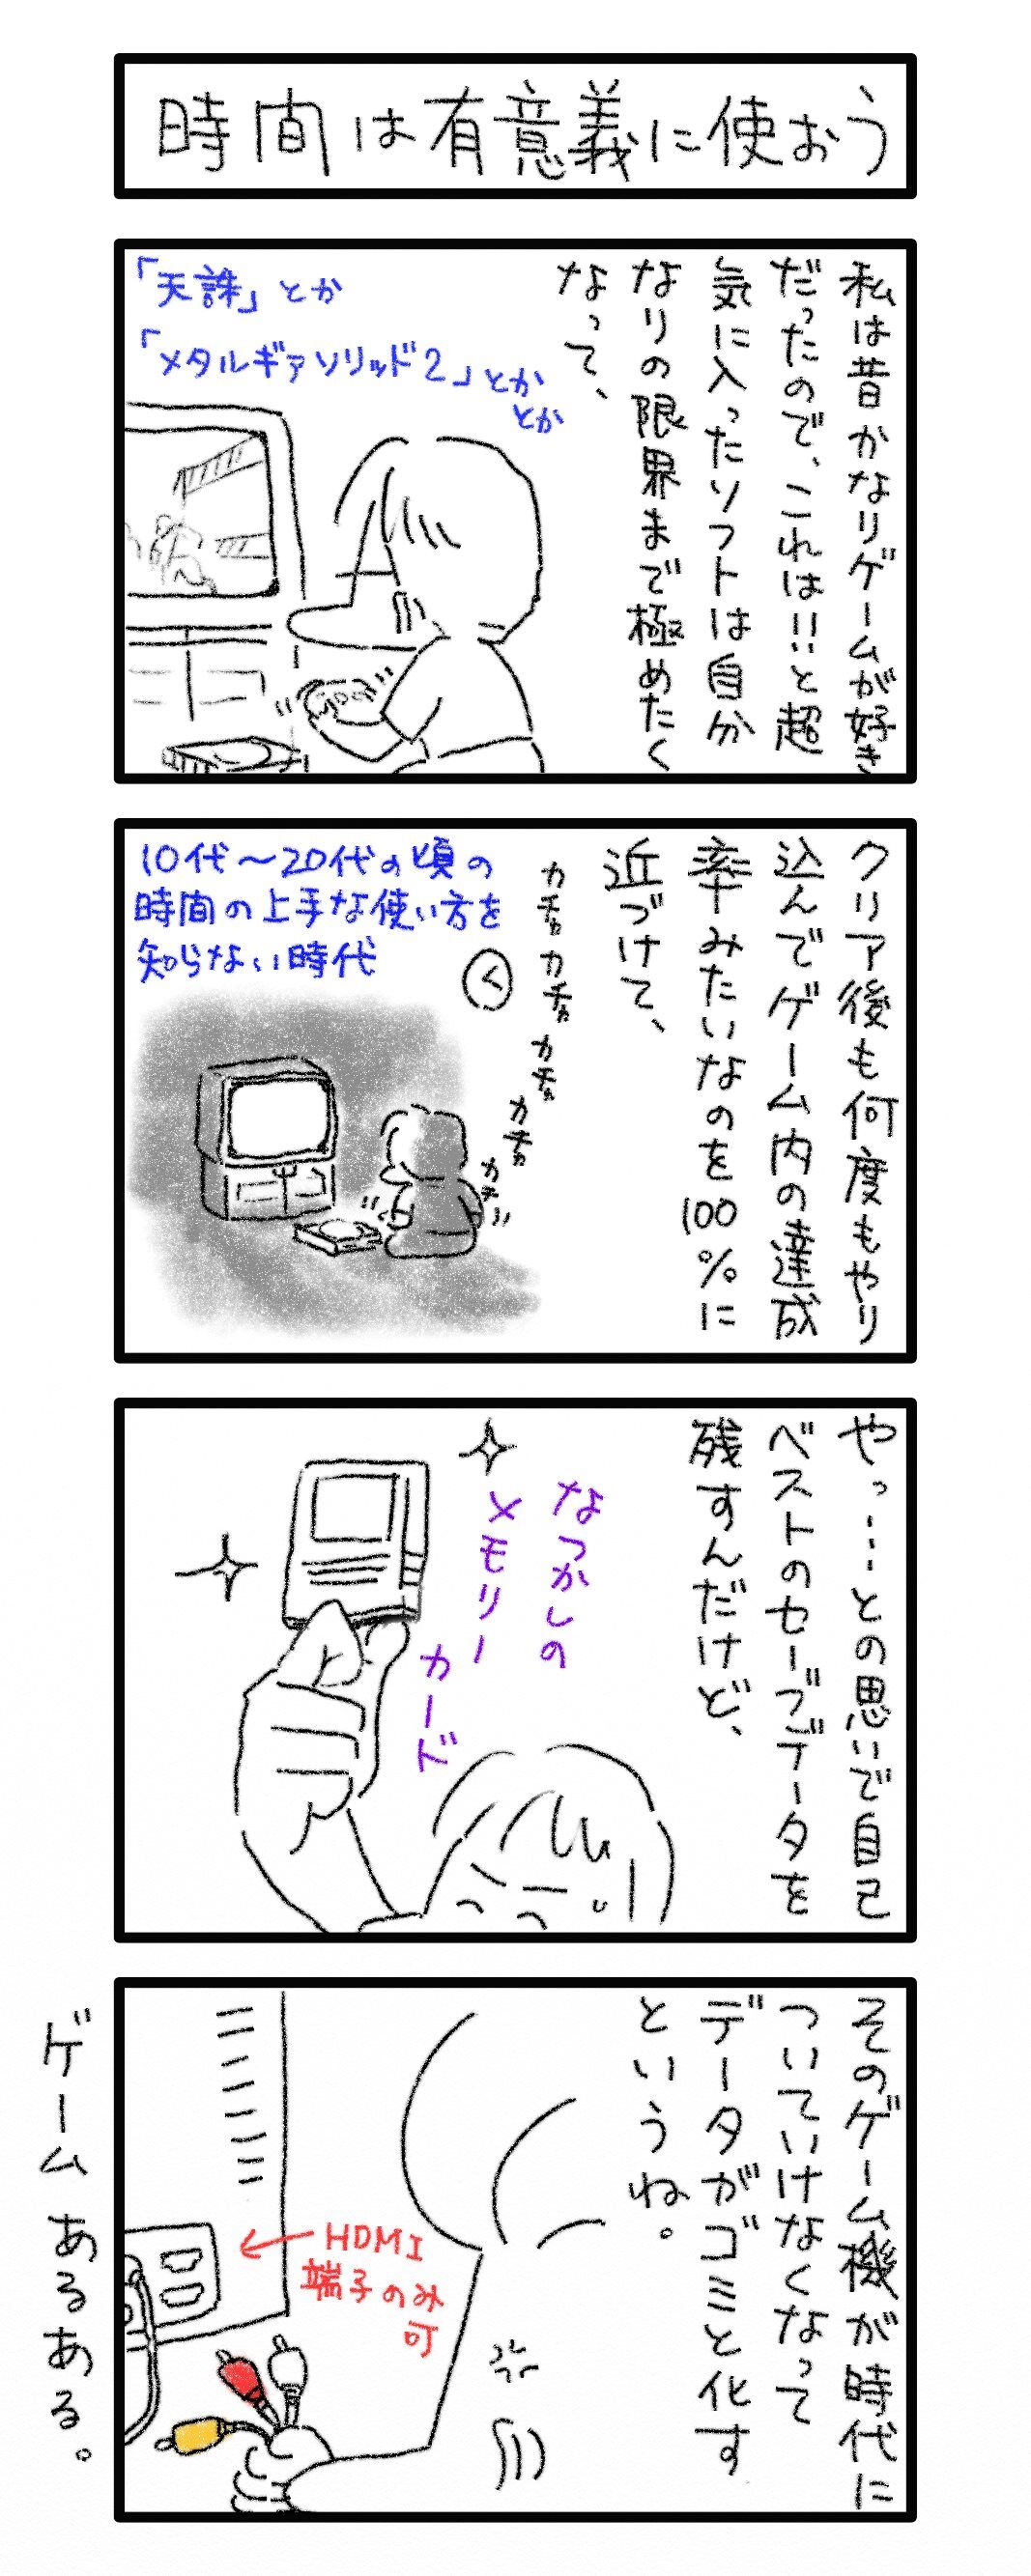 時間は有意義に使おう
私は昔かなりゲームが好き
だったので、これは!!と超
気に入ったソフトは自分
なりの限界まで極めたく
なって、
「天誅」とか
「メタルギアソリッド2」とか
とか
クリア後も何度もやり
込んでゲーム内の達成
率みたいなのを100%に
近づけて、
カチャカチャカチャカチャカチ
く
10代〜20代の頃の
時間の上手な使い方を
知らない時代
やっ…との思いで自己
ベストのセーブデータを
残すんだけど、
なつかしの
メモリー
カード
そのゲーム機が時代に
ついていけなくなって
データがゴミと化す
というね。
HDMI
端子のみ
可
ゲームあるある。